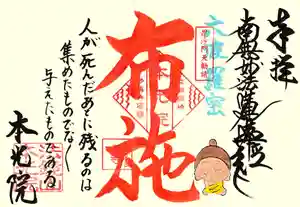 奉拝
南無妙法蓮華経
六波羅蜜
布施
本光院
人が死んだあとに残るのは
集めたものでなく
与えたものである
本光院